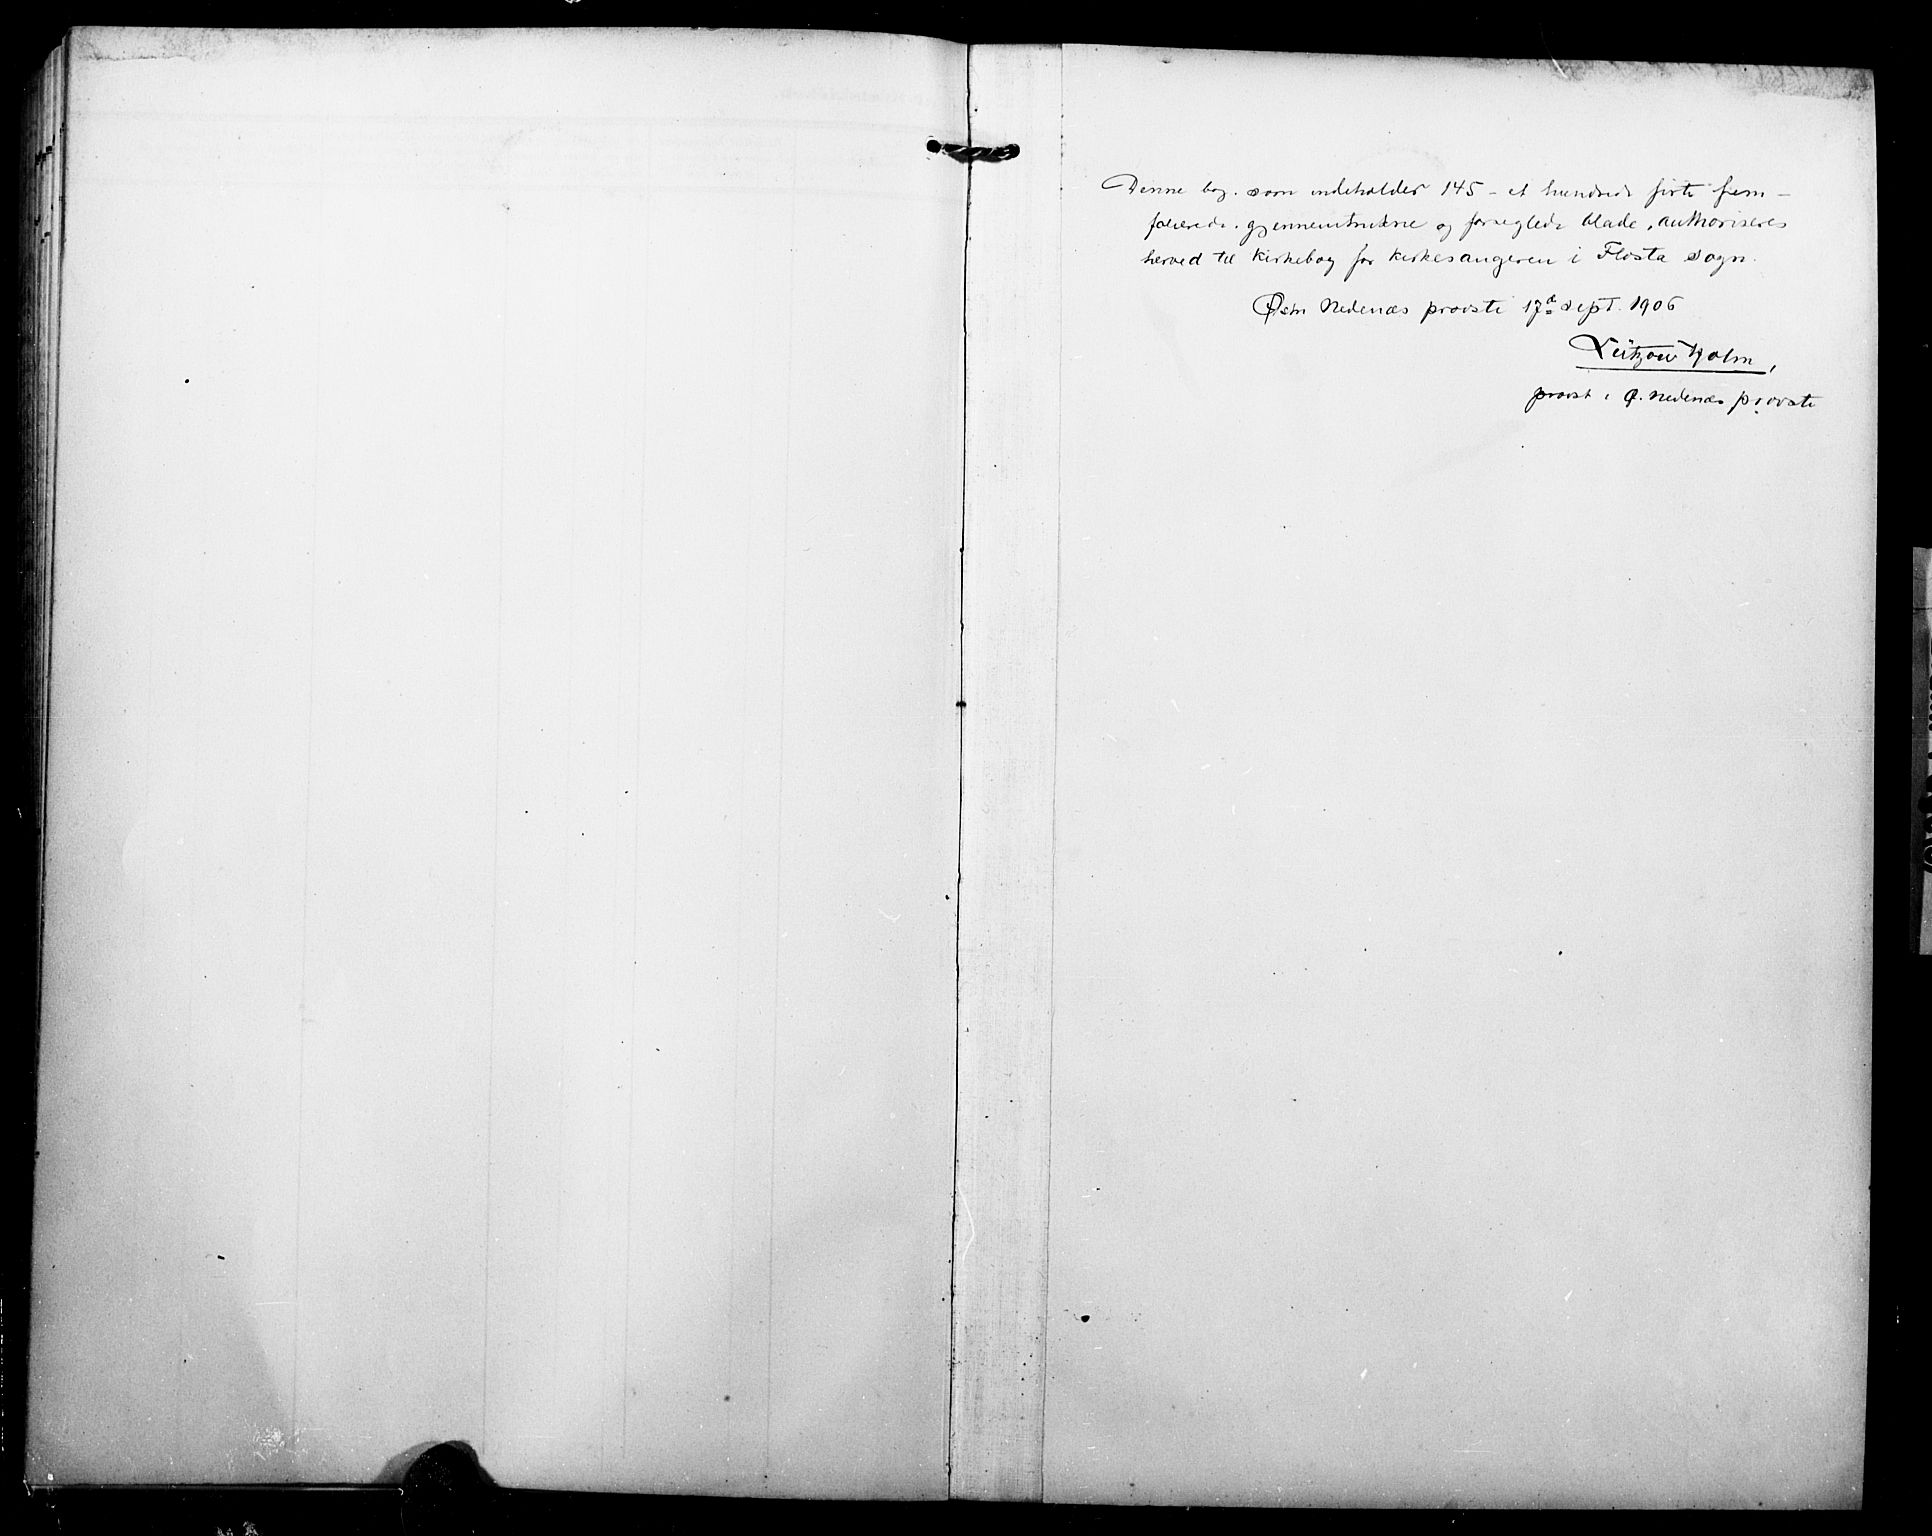 Denne bog, som indeholder 145 – et hundrede firti fem –
folierede, gjennemtrukne og forseglede blade, authoriseres
herved til kirkebog for kirkesangeren i Flosta sogn.
Østre Nedenæs provsti 17d sept. 1906
Lützow Holm,
provst i Ø. Nedenæs provsti